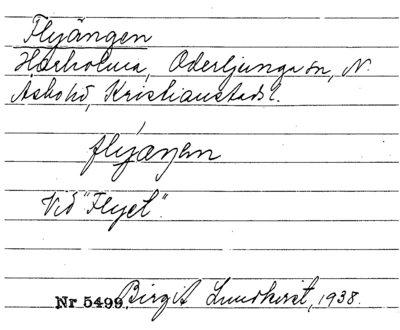 Flyängen
Harholma, Oderljunga sn, N.
Åsbohd, Kristianstads l.
flyæŋen
Vid "Flyet".
Nr 5499. Birgit Lundkvist, 1938.